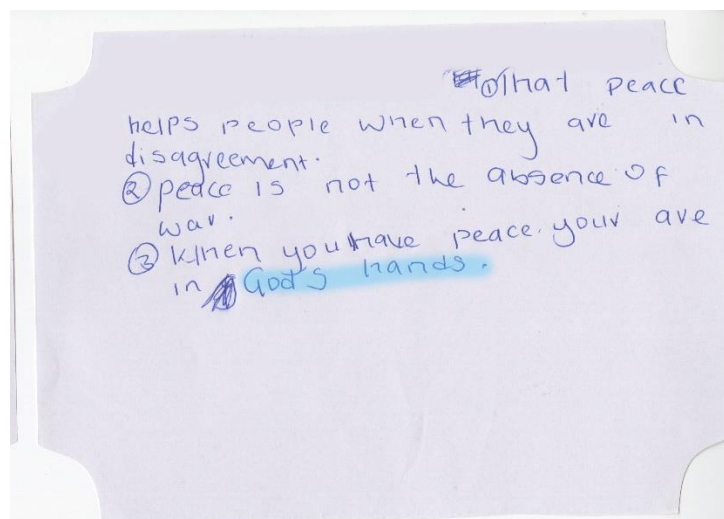 ①That peace
helps people when they are in
disagreement.
② peace is not the absence of
war.
③ When you have peace. your are
in God's hands.